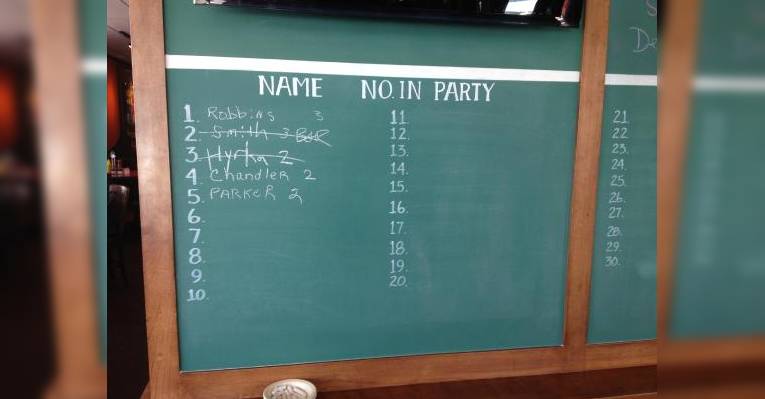 NAME NO. IN PARTY
1. Robbins 3
2. Smith 3 BAR
3. Hyrka 2
4. Chandler 2
5. PARKER 2
6.
7.
8.
9.
10.
11.
12.
13.
14.
15.
16.
17.
18.
19.
20.
21
22
23.
24.
25.
26.
27.
28.
29.
30.